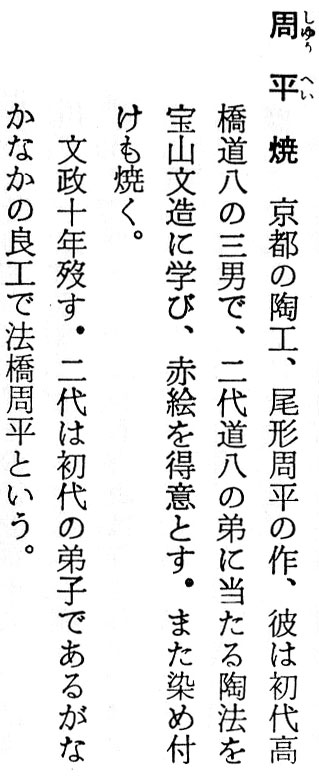 周平焼　京都の陶工、尾形周平の作、彼は初代高
橋道八の三男で、二代道八の弟に当たる陶法を
宝山文造に学び、赤絵を得意とす。また染め付
けも焼く。
文政十年歿す。二代は初代の弟子であるがな
かなかの良工で法橋周平という。
しゅう
へい